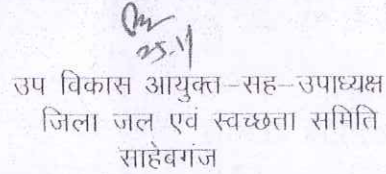 25.11
उप विकास आयुक्त-सह-उपाध्यक्ष
जिला जल एवं स्वच्छता समिति
साहेबगंज